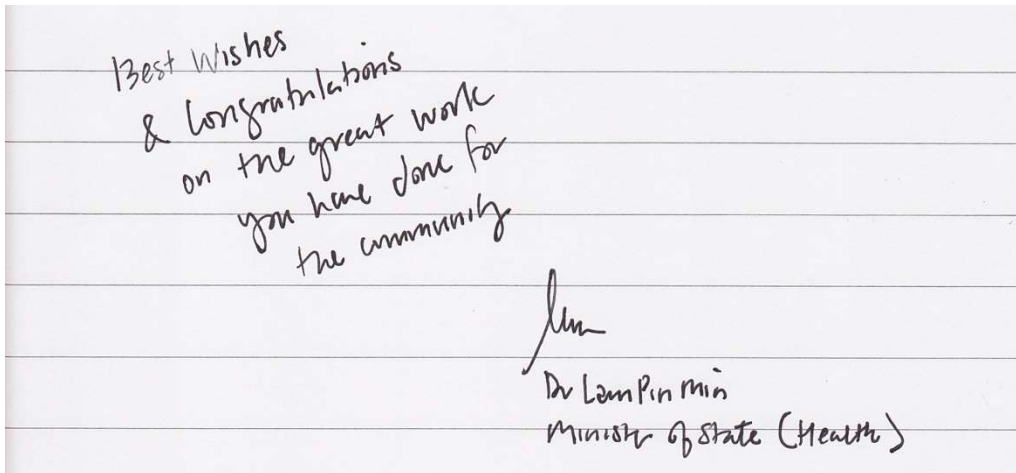 Best Wishes
& Congratulations
on the great work
you have done for
the community
Lam
Dr Lam Pin Min
Minister of State (Health)